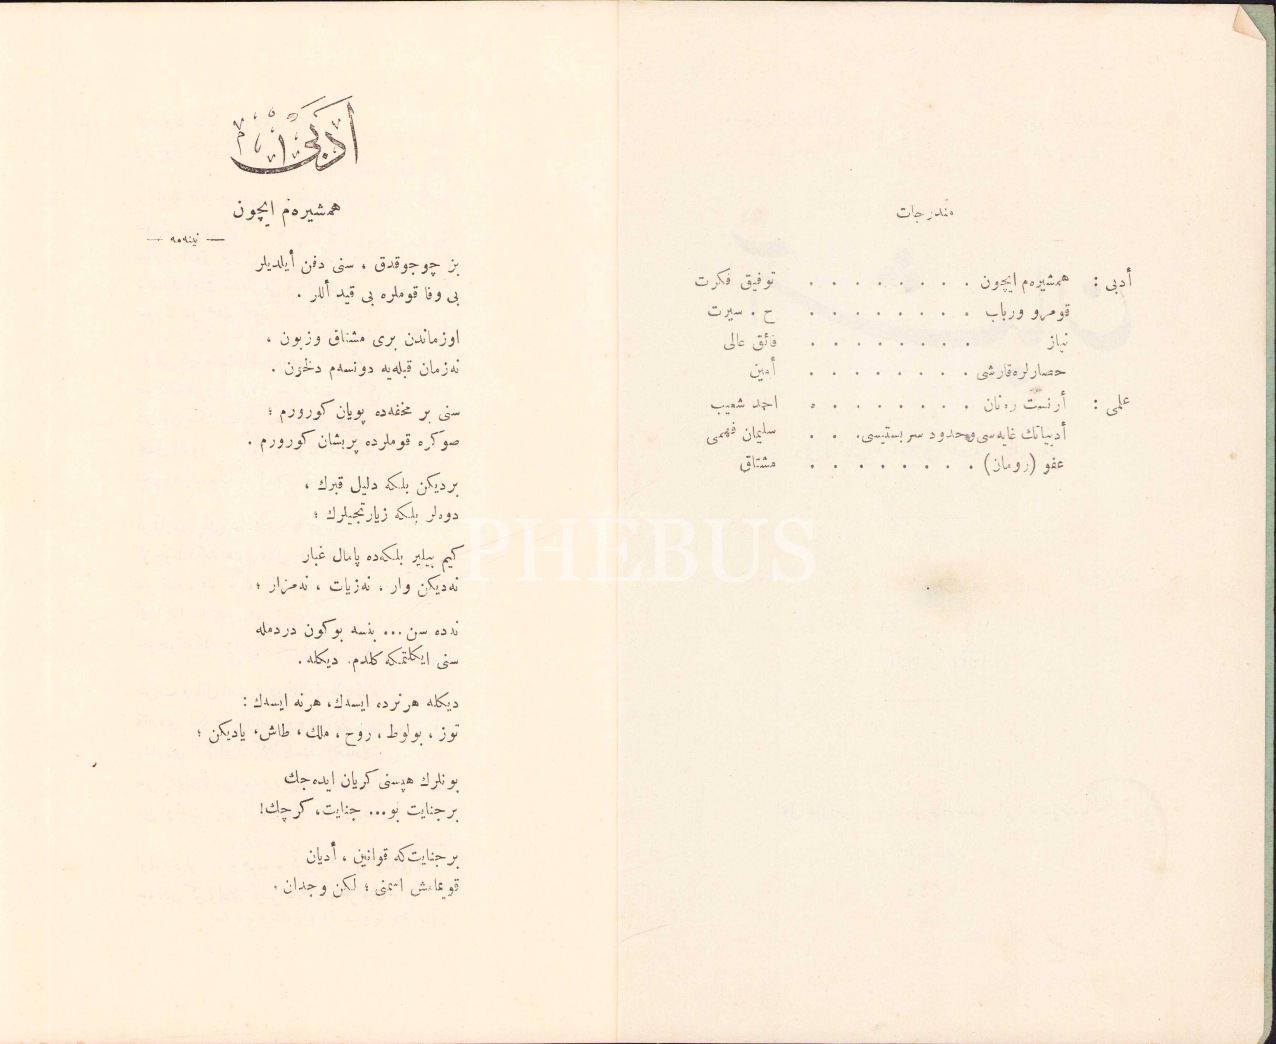 مندرجات
أدبی : همشیره‌م ایچون . . . . . . . . توفیق فكرت
قومرو ورباب . . . . . . . . ح . سیرت
نیاز . . . . . . . . فائق عالی
حصارلره‌قارشی . . . . . . . . أمین
علمی : أرنست رەنان . . . . . . . . احمد شعیب
أدبیاتك غایه‌سی‌وحدود سربستیسی. . . سلیمان فهمی
عفو (رومان) . . . . . . . . مشتاق
أدبی
همشیره‌م ایچون
— نینەمه —
بز چوجوقدق ، سنی دفن أیلدیلر
بی وفا قوملره بی قید أللر .
اوزماندن بری مشتاق وزبون ،
نەزمان قبله‌یه دونسەم دلخون .
سنی بر محفه‌ده پویان كورورم ؛
صوكره قوملرده پریشان كورورم .
بردیكن بلكه دلیل قبرك ،
دوه‌لر بلكه زیارتجیلرك ؛
كیم بیلیر بلكه‌ده پامال غبار
نەدیكن وار ، نەزیات ، نەمزار ؛
نەده سن ... بنسه بوكون دردمله
سنی ایكلتمكه كلدم. دیكله .
دیكله هرنرده ایسەك، هرنه ایسەك :
توز ، بولوط ، روح ، ملك ، طاش، یادیكن ؛
بونلرك هپسنی كریان ایده‌جك
برجنایت بو... جنایت، كرچك!
برجنایت‌كه قوانین ، أدیان
قویمامش اسمنی ؛ لكن وجدان .
PHEBUS